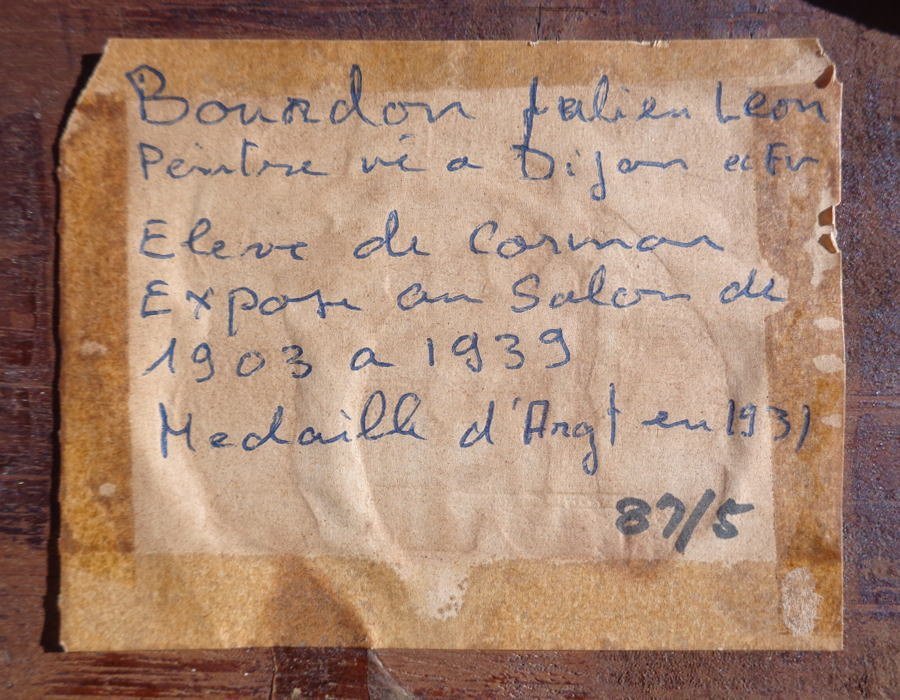 Bourdon Julien Leon
Peintre né a Dijon
Eleve de Cormon
Expose au Salon de
1903 a 1939
Medaille d'Argt en 1931
37/5